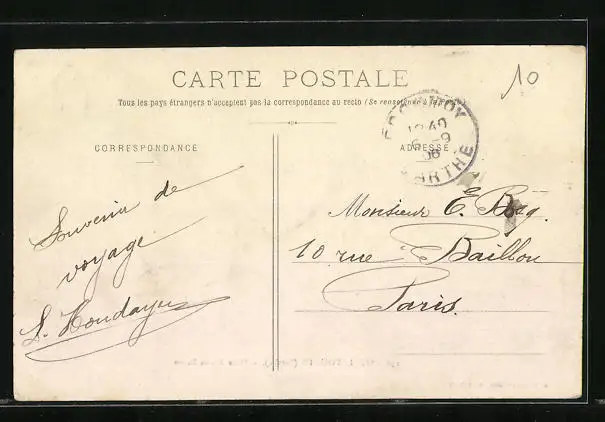 10
CARTE POSTALE
Tous les pays étrangers n'acceptent pas la correspondance au recto (Se renseigner à la Poste)
CORRESPONDANCE
ADRESSE
SARTHE
Souvenir de
voyage
Monsieur E. Bocq.
10 rue Baillou
Paris.